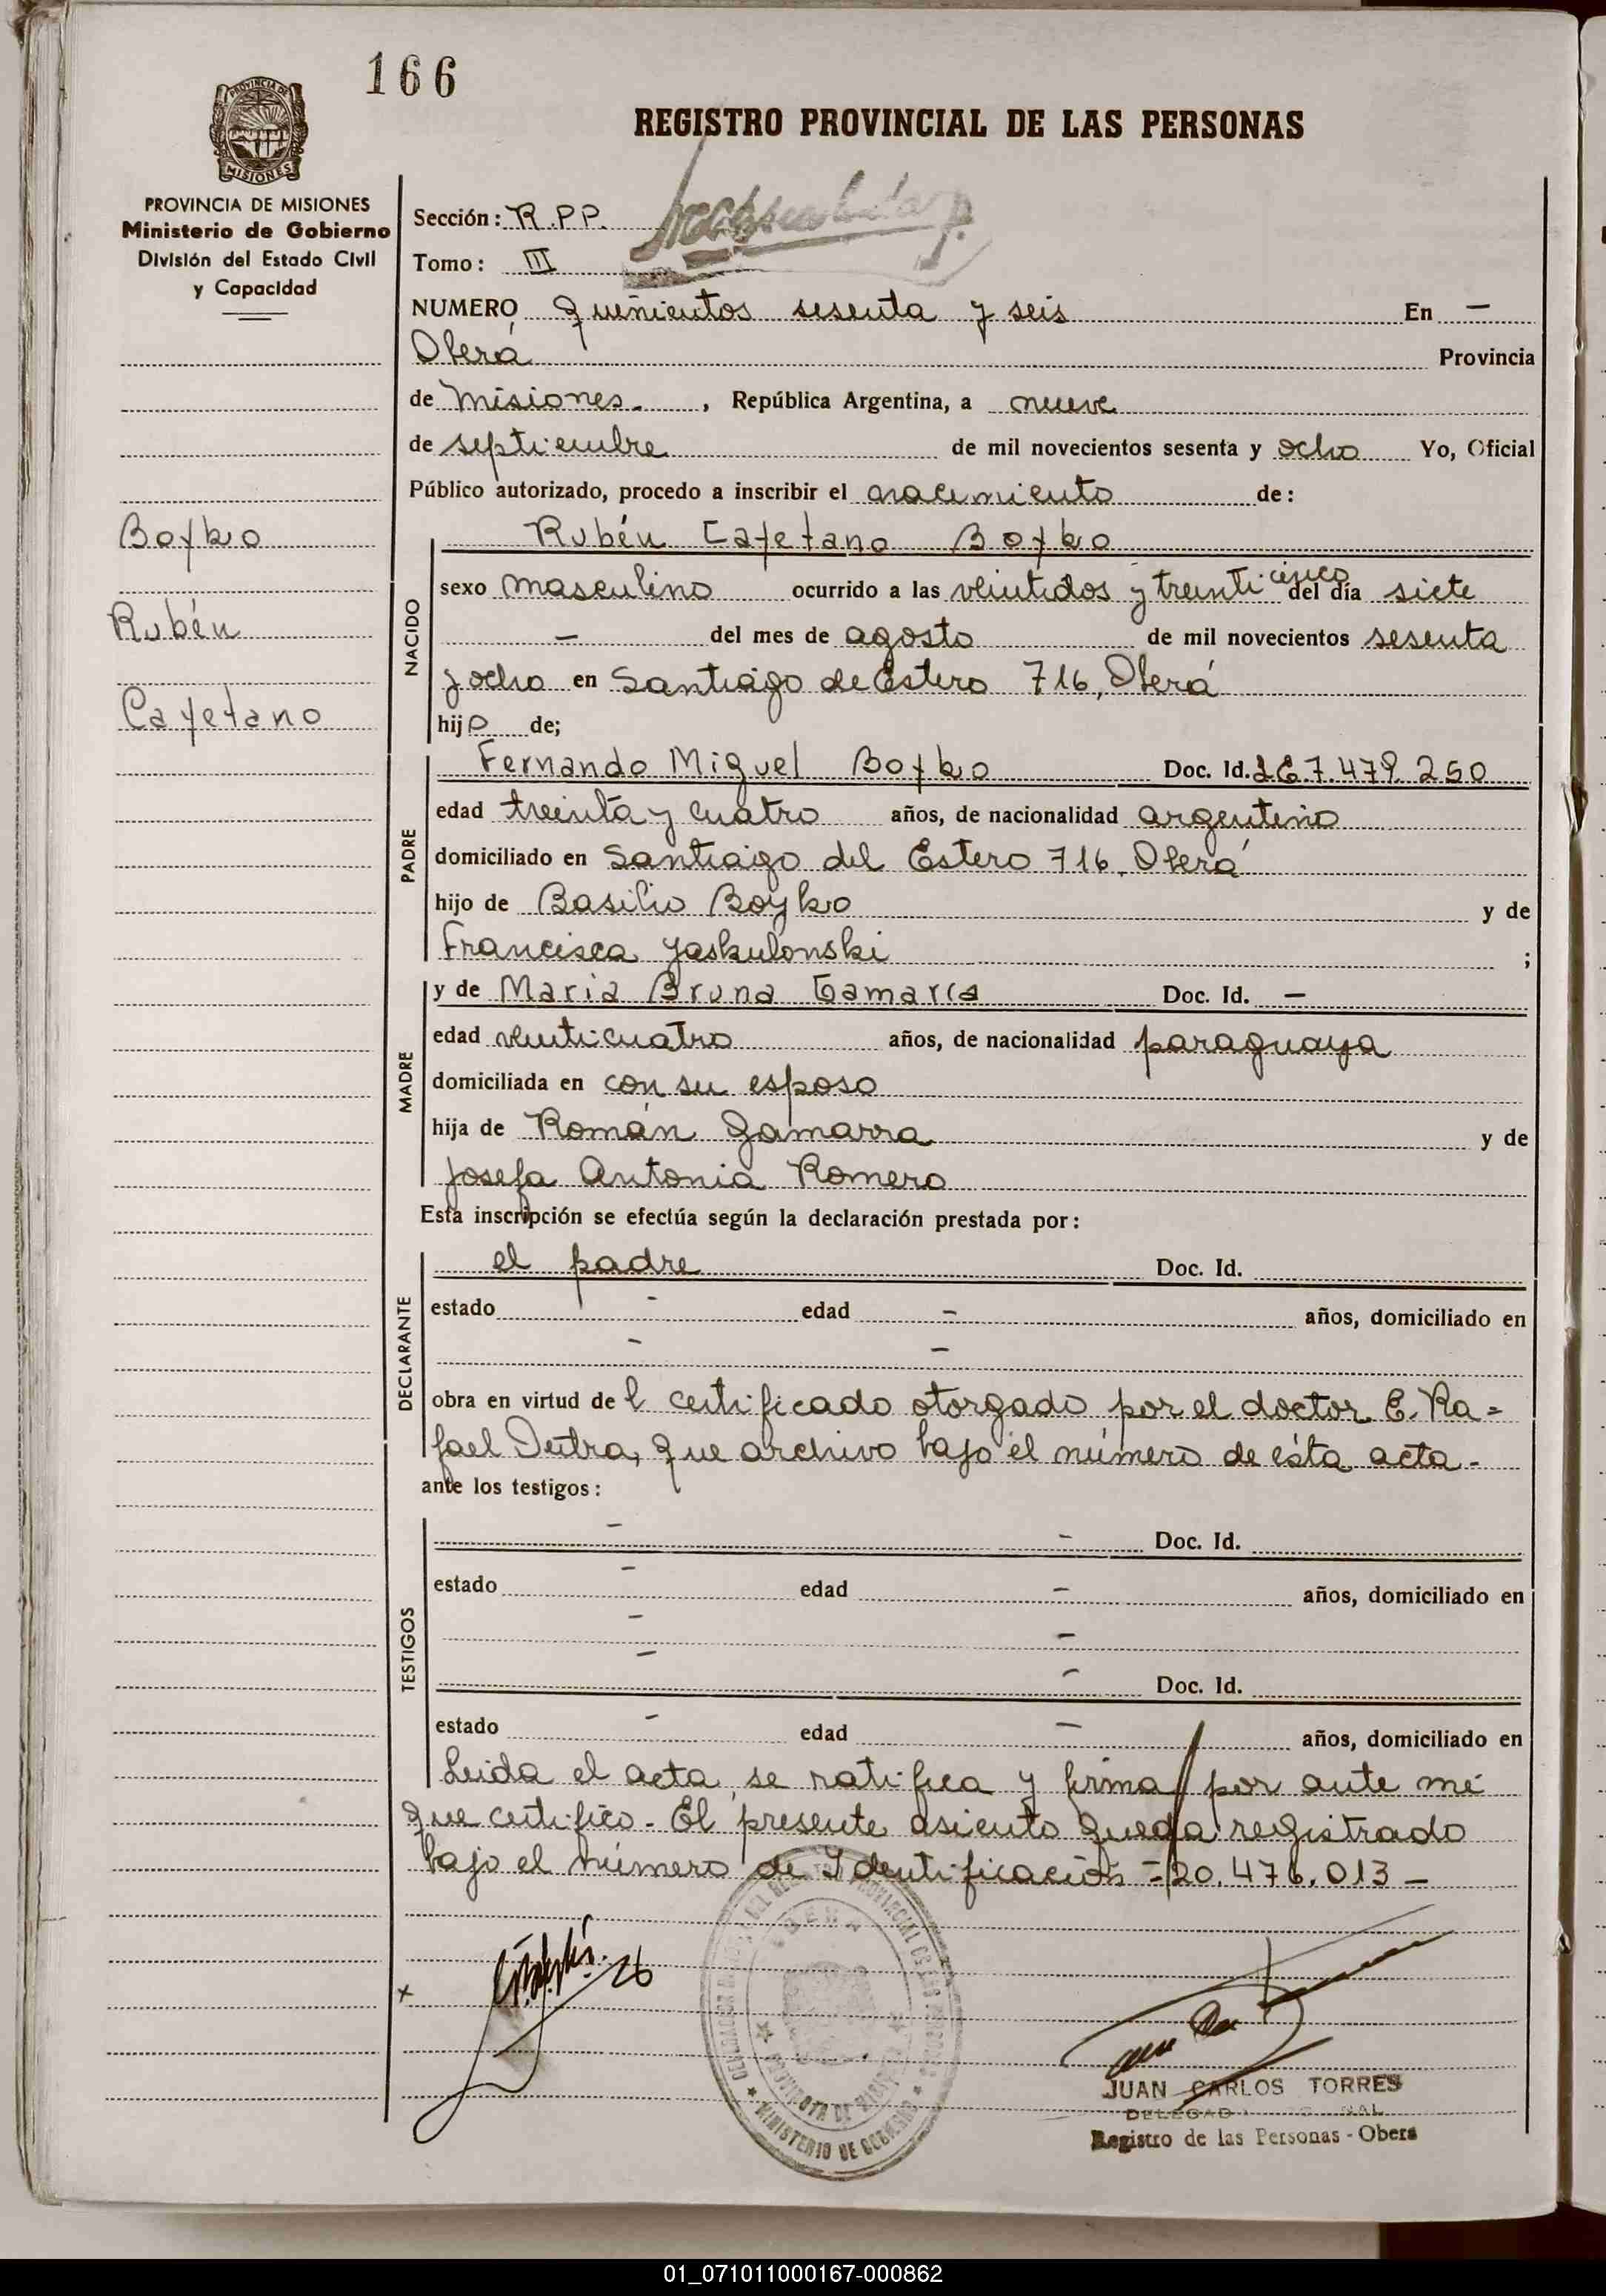 166
REGISTRO PROVINCIAL DE LAS PERSONAS
PROVINCIA DE
MISIONES
PROVINCIA DE MISIONES
Ministerio de Gobierno
División del Estado Civil
y Capacidad
Sección: R.P.P.
Tomo: III
NUMERO quinientos sesenta y seis En —
Oberá Provincia
de Misiones - , República Argentina, a nueve
de septiembre de mil novecientos sesenta y ocho Yo, Oficial
Público autorizado, procedo a inscribir el nacimiento de:
Boyko
Rubén
Cayetano
NACIDO
Rubén Cayetano Boyko
sexo masculino ocurrido a las veintidos y treinti cinco del día siete
— del mes de agosto de mil novecientos sesenta
y ocho en Santiago de Estero 716, Oberá
hijo de;
PADRE
Fernando Miguel Boyko Doc. Id. LE 7.479.250
edad treinta y cuatro años, de nacionalidad argentino
domiciliado en Santiago del Estero 716, Oberá
hijo de Basilio Boyko y de
Francisca Yaskulonski ;
MADRE
y de Maria Bruna Gamarra Doc. Id. —
edad veinticuatro años, de nacionalidad paraguaya
domiciliada en con su esposo
hija de Román Gamarra y de
Josefa Antonia Romero
Esta inscripción se efectúa según la declaración prestada por:
DECLARANTE
el padre Doc. Id.
estado - edad - años, domiciliado en
- -
obra en virtud de l certificado otorgado por el doctor E. Ra=
fael Dutra, que archivo bajo el número de ésta acta -
ante los testigos:
TESTIGOS
- - Doc. Id.
estado - edad - años, domiciliado en
- -
- - Doc. Id.
estado - edad - años, domiciliado en
Leida el acta, se ratifica y firma por ante mi
que certifico - El presente asiento queda registrado
bajo el número de Identificación = 20.476.013 -
x
OBERA
MINISTERIO DE GOBIERNO
JUAN CARLOS TORRES
Registro de las Personas - Obera
01_071011000167-000862